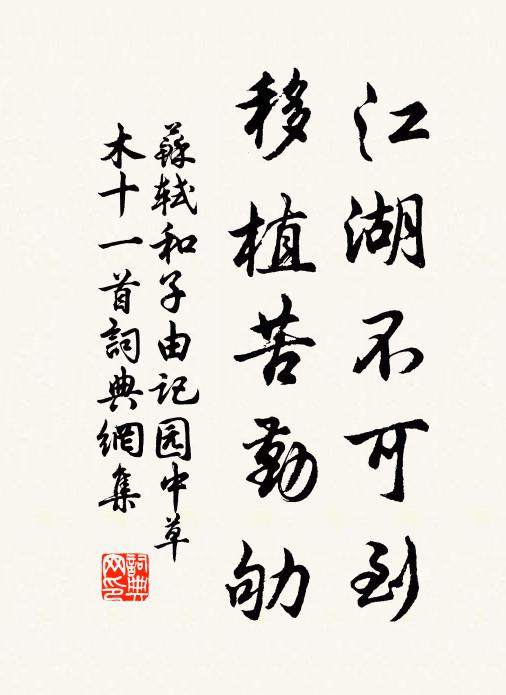 江湖不可到
移植苦勤劬
蘇軾和子由记园中草
木十一首詞典網集
詞典
网印